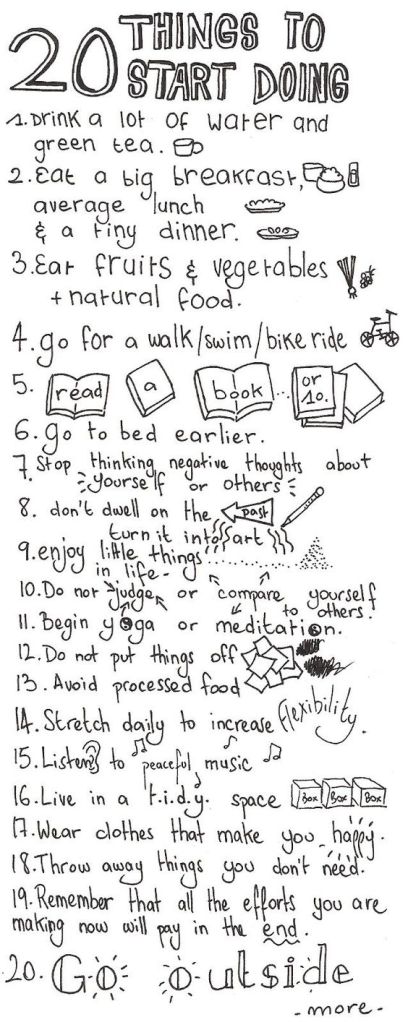 20 THINGS TO
START DOING
1. Drink a lot of water and
green tea.
2. Eat a big breakfast,
average lunch
& a tiny dinner.
3. Eat fruits & vegetables
+ natural food.
4. go for a walk/swim/bike ride
5. read a book ... or 10.
6. go to bed earlier.
7. Stop thinking negative thoughts about
yourself or others
8. don't dwell on the past
turn it into art
9. enjoy little things
in life -
10. Do not judge or compare yourself
to others!
11. Begin yoga or meditation.
12. Do not put things off
13. Avoid processed food
14. Stretch daily to increase flexibility.
15. Listen to peaceful music
16. Live in a t.i.d.y. space Box Box Box
17. Wear clothes that make you happy.
18. Throw away things you don't need.
19. Remember that all the efforts you are
making now will pay in the end.
20. Go outside
- more -